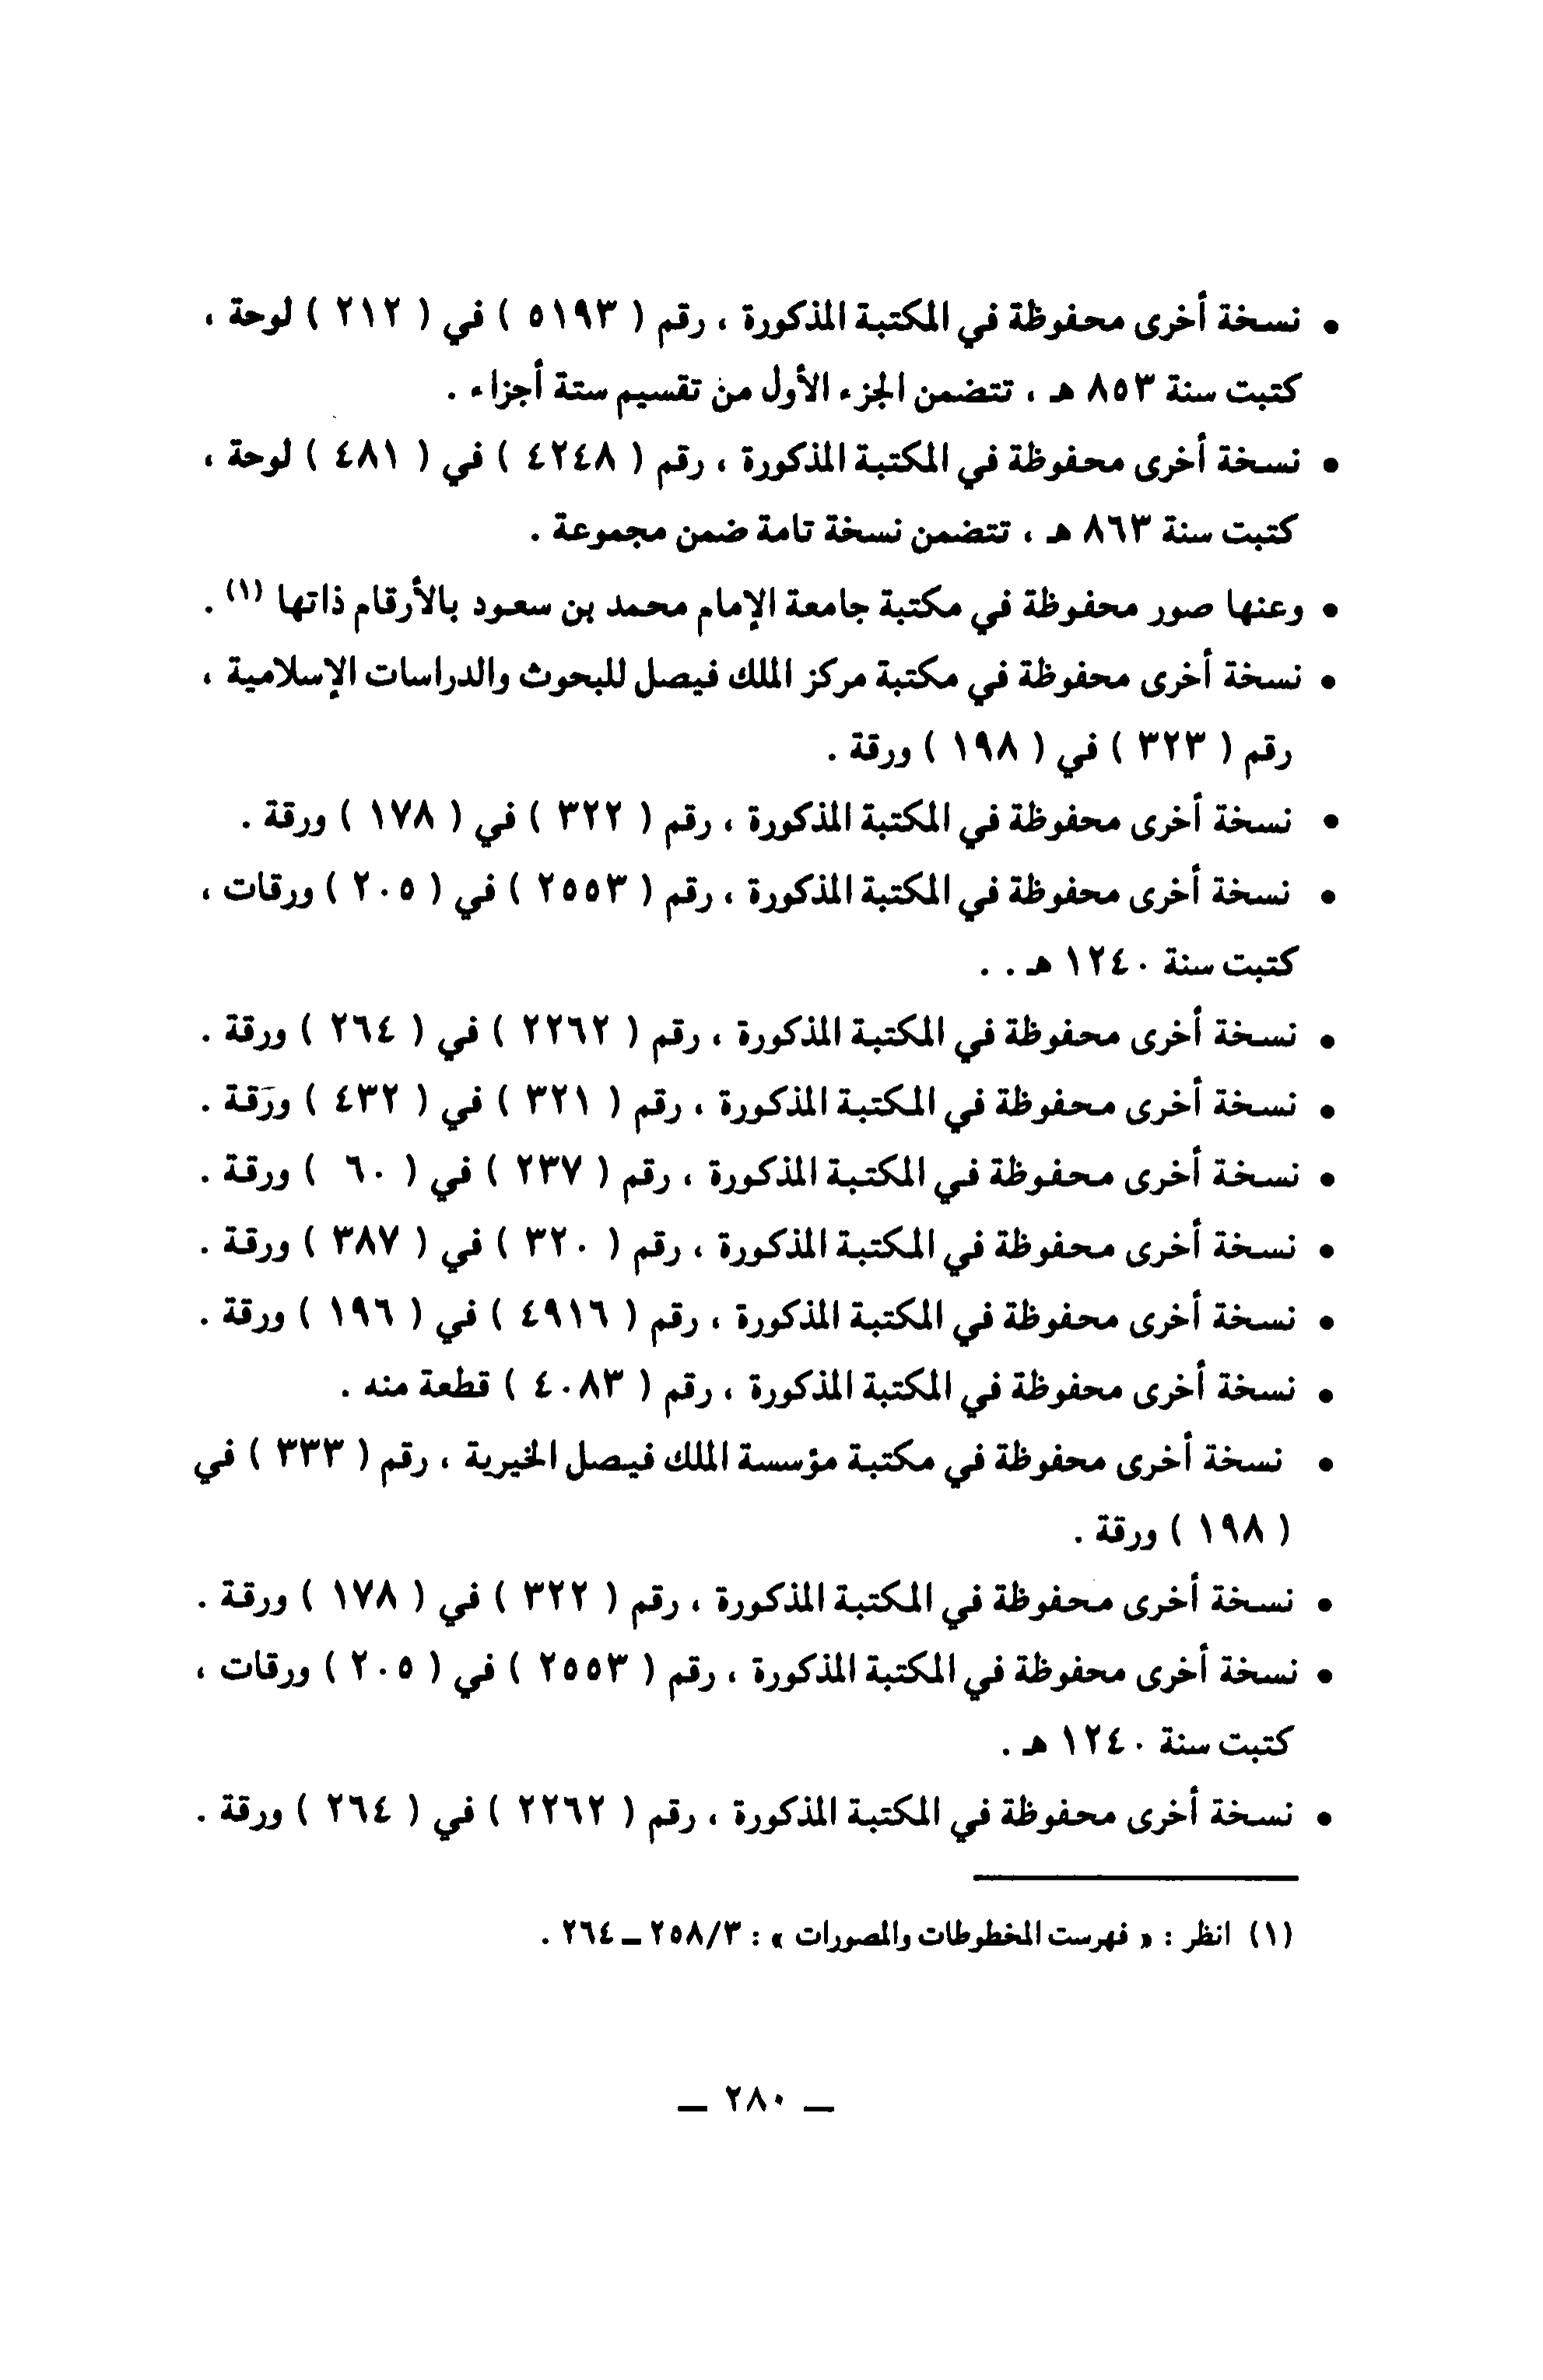 • نسخة أخرى محفوظة في المكتبة المذكورة ، رقم ( ٥١٩٣ ) في ( ٢١٢ ) لوحة ،
كتبت سنة ٨٥٣ هـ ، تتضمن الجزء الأول من تقسيم ستة أجزاء .
• نسخة أخرى محفوظة في المكتبة المذكورة ، رقم ( ٤٢٤٨ ) في ( ٤٨١ ) لوحة ،
كتبت سنة ٨٦٣ هـ ، تتضمن نسخة تامة ضمن مجموعة .
• وعنها صور محفوظة في مكتبة جامعة الإمام محمد بن سعود بالأرقام ذاتها (١) .
• نسخة أخرى محفوظة في مكتبة مركز الملك فيصل للبحوث والدراسات الإسلامية ،
رقم ( ٣٢٣ ) في ( ١٩٨ ) ورقة .
• نسخة أخرى محفوظة في المكتبة المذكورة ، رقم ( ٣٢٢ ) في ( ١٧٨ ) ورقة .
• نسخة أخرى محفوظة في المكتبة المذكورة ، رقم ( ٢٥٥٣ ) في ( ٢٠٥ ) ورقات ،
كتبت سنة ١٢٤٠ هـ . .
• نسخة أخرى محفوظة في المكتبة المذكورة ، رقم ( ٢٢٦٢ ) في ( ٢٦٤ ) ورقة .
• نسخة أخرى محفوظة في المكتبة المذكورة ، رقم ( ٣٢١ ) في ( ٤٣٢ ) ورقة .
• نسخة أخرى محفوظة في المكتبة المذكورة ، رقم ( ٢٣٧ ) في ( ٦٠ ) ورقة .
• نسخة أخرى محفوظة في المكتبة المذكورة ، رقم ( ٣٢٠ ) في ( ٣٨٧ ) ورقة .
• نسخة أخرى محفوظة في المكتبة المذكورة ، رقم ( ٤٩١٦ ) في ( ١٩٦ ) ورقة .
• نسخة أخرى محفوظة في المكتبة المذكورة ، رقم ( ٤٠٨٣ ) قطعة منه .
• نسخة أخرى محفوظة في مكتبة مؤسسة الملك فيصل الخيرية ، رقم ( ٣٣٣ ) في
( ١٩٨ ) ورقة .
• نسخة أخرى محفوظة في المكتبة المذكورة ، رقم ( ٣٢٢ ) في ( ١٧٨ ) ورقة .
• نسخة أخرى محفوظة في المكتبة المذكورة ، رقم ( ٢٥٥٣ ) في ( ٢٠٥ ) ورقات ،
كتبت سنة ١٢٤٠ هـ .
• نسخة أخرى محفوظة في المكتبة المذكورة ، رقم ( ٢٢٦٢ ) في ( ٢٦٤ ) ورقة .
(١) انظر : « فهرست المخطوطات والمصورات » : ٢٥٨/٣ ـ ٢٦٤ .
ـ ٢٨٠ ـ